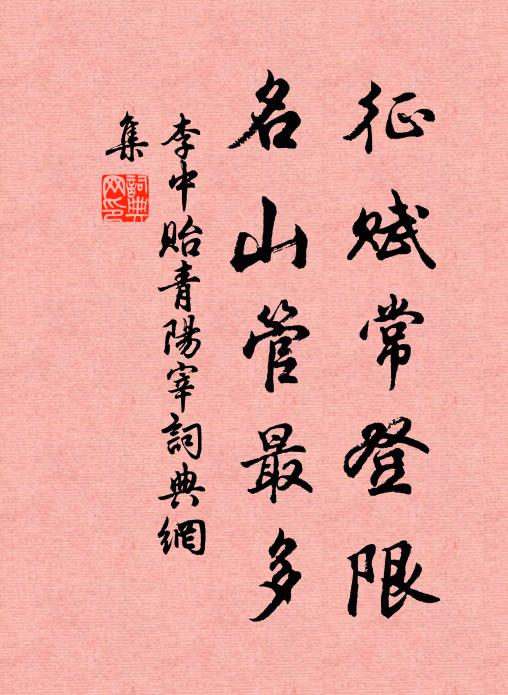 征赋常登限
名山管最多
李中贻青陽宰詞典網
集
詞典网印